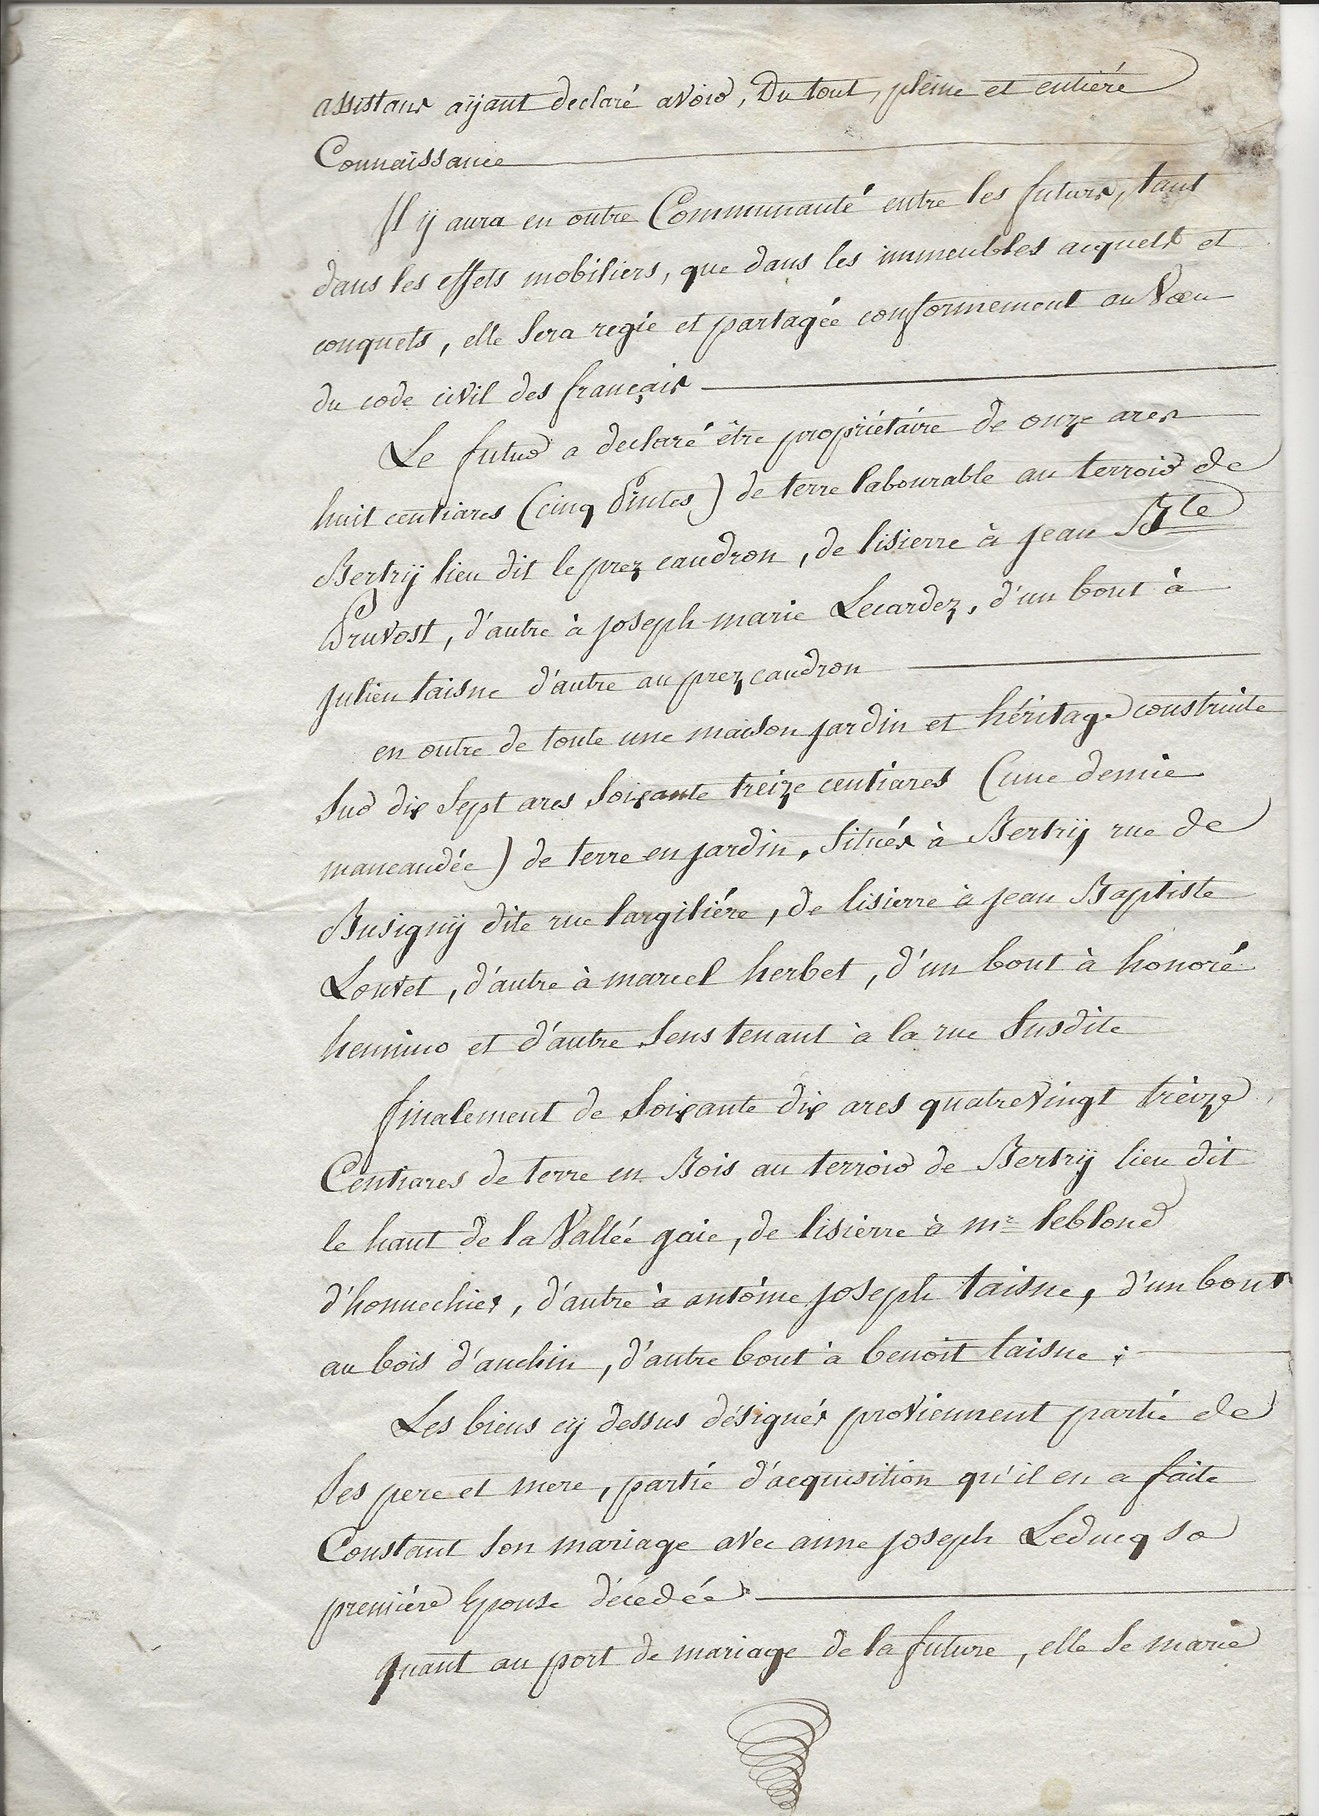 assistans aÿant declaré avoir, Du tout, pleine et entiéré
Connaissance
Il ÿ aura en outre Communauté entre les futurs, tant
dans les effets mobiliers, que dans les immeubles acquets et
conquets, elle sera regie et partagée conformement au Vœu
du code civil des français
Le futur a declaré être propriétaire de onze ares
huit centiares (cinq Pintes) de terre labourable au terroir de
Bertrÿ lieu dit le prez caudron, de lisierre à jean Bte
Pruvost, d'autre à joseph marie Lecardez, d'un bout à
Julien taisne d'autre au prez caudron
en outre de toute une maison jardin et héritage construite
sur dix sept ares soixante treize centiares (une demie
mancaudée) de terre en jardin, situés à Bertrÿ rue de
Busignÿ dite rue largiliére, de lisierre à jean Baptiste
Louvet, d'autre à marcel herbet, d'un bout à honoré
hennino et d'autre sens tenant à la rue susdite
finalement de soixante dix ares quatrevingt treize
Centiares de terre en Bois au terroir de Bertrÿ lieu dit
le haut de la Vallée gaie, de lisierre à mr leblond
d'honnechies, d'autre à antoine joseph taisne, d'un bout
au bois d'anchin, d'autre bout à benoit taisne ;
Les biens cÿ dessus désignés proviennent partie de
ses pere et mere, partie d'acquisition qu'il en a faite
Constant son mariage avec anne joseph Leducq sa
premiére Epouse décédée
quant au port de mariage de la future, elle se marie